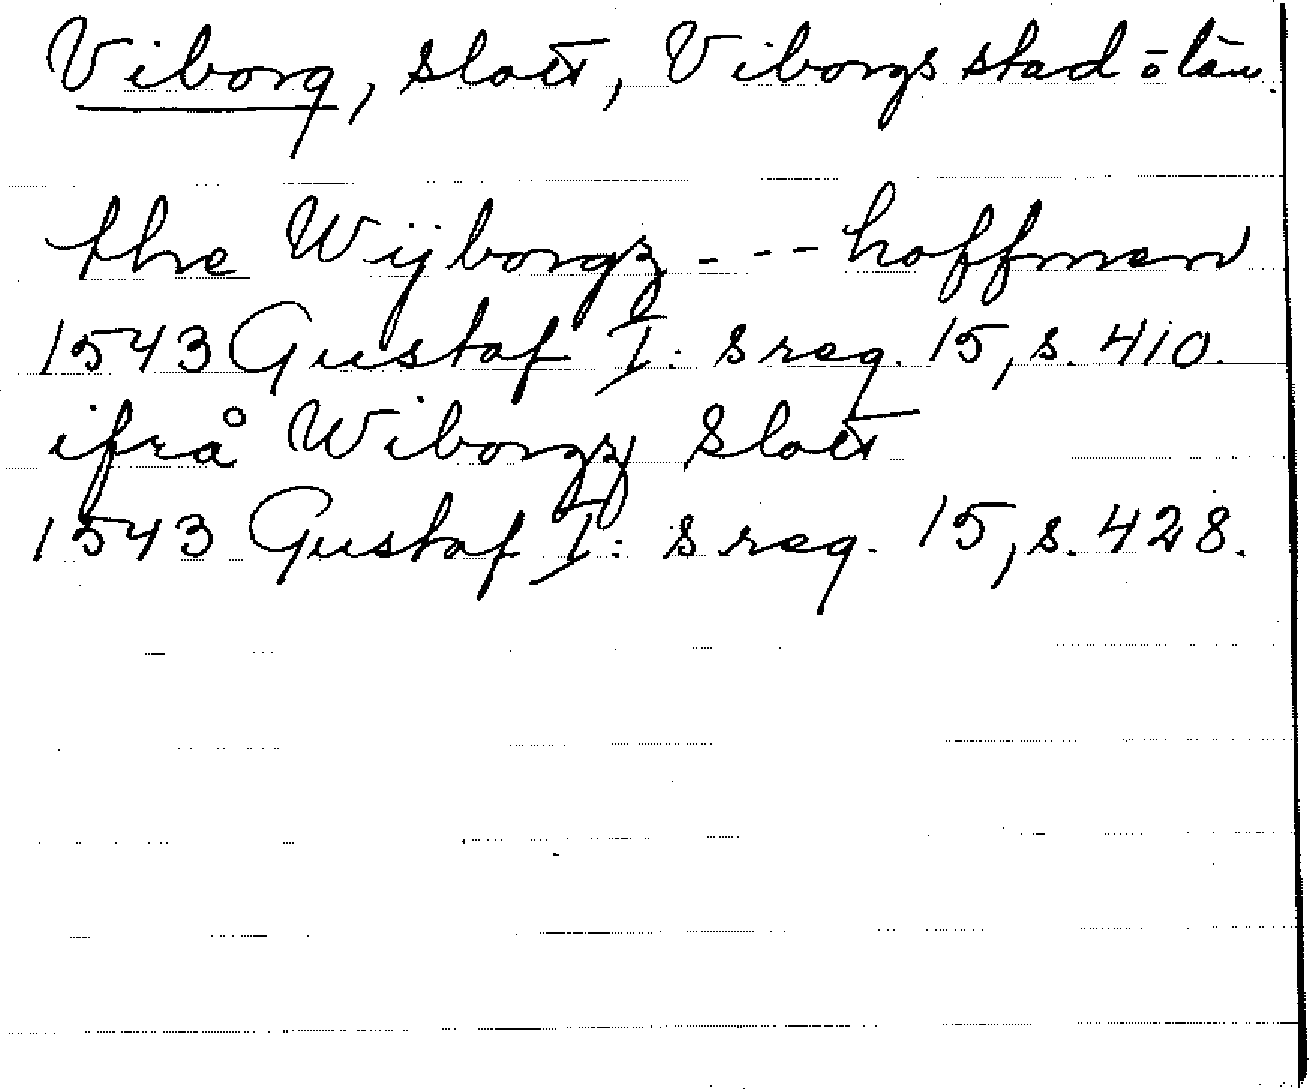 Viborg, slott, Viborgs stad o län.
the Wijborgz --- hoffmen
1543 Gustaf I: s reg. 15, s. 410.
ifrå Wiborgz Slott
1543 Gustaf I: s reg. 15, s. 428.